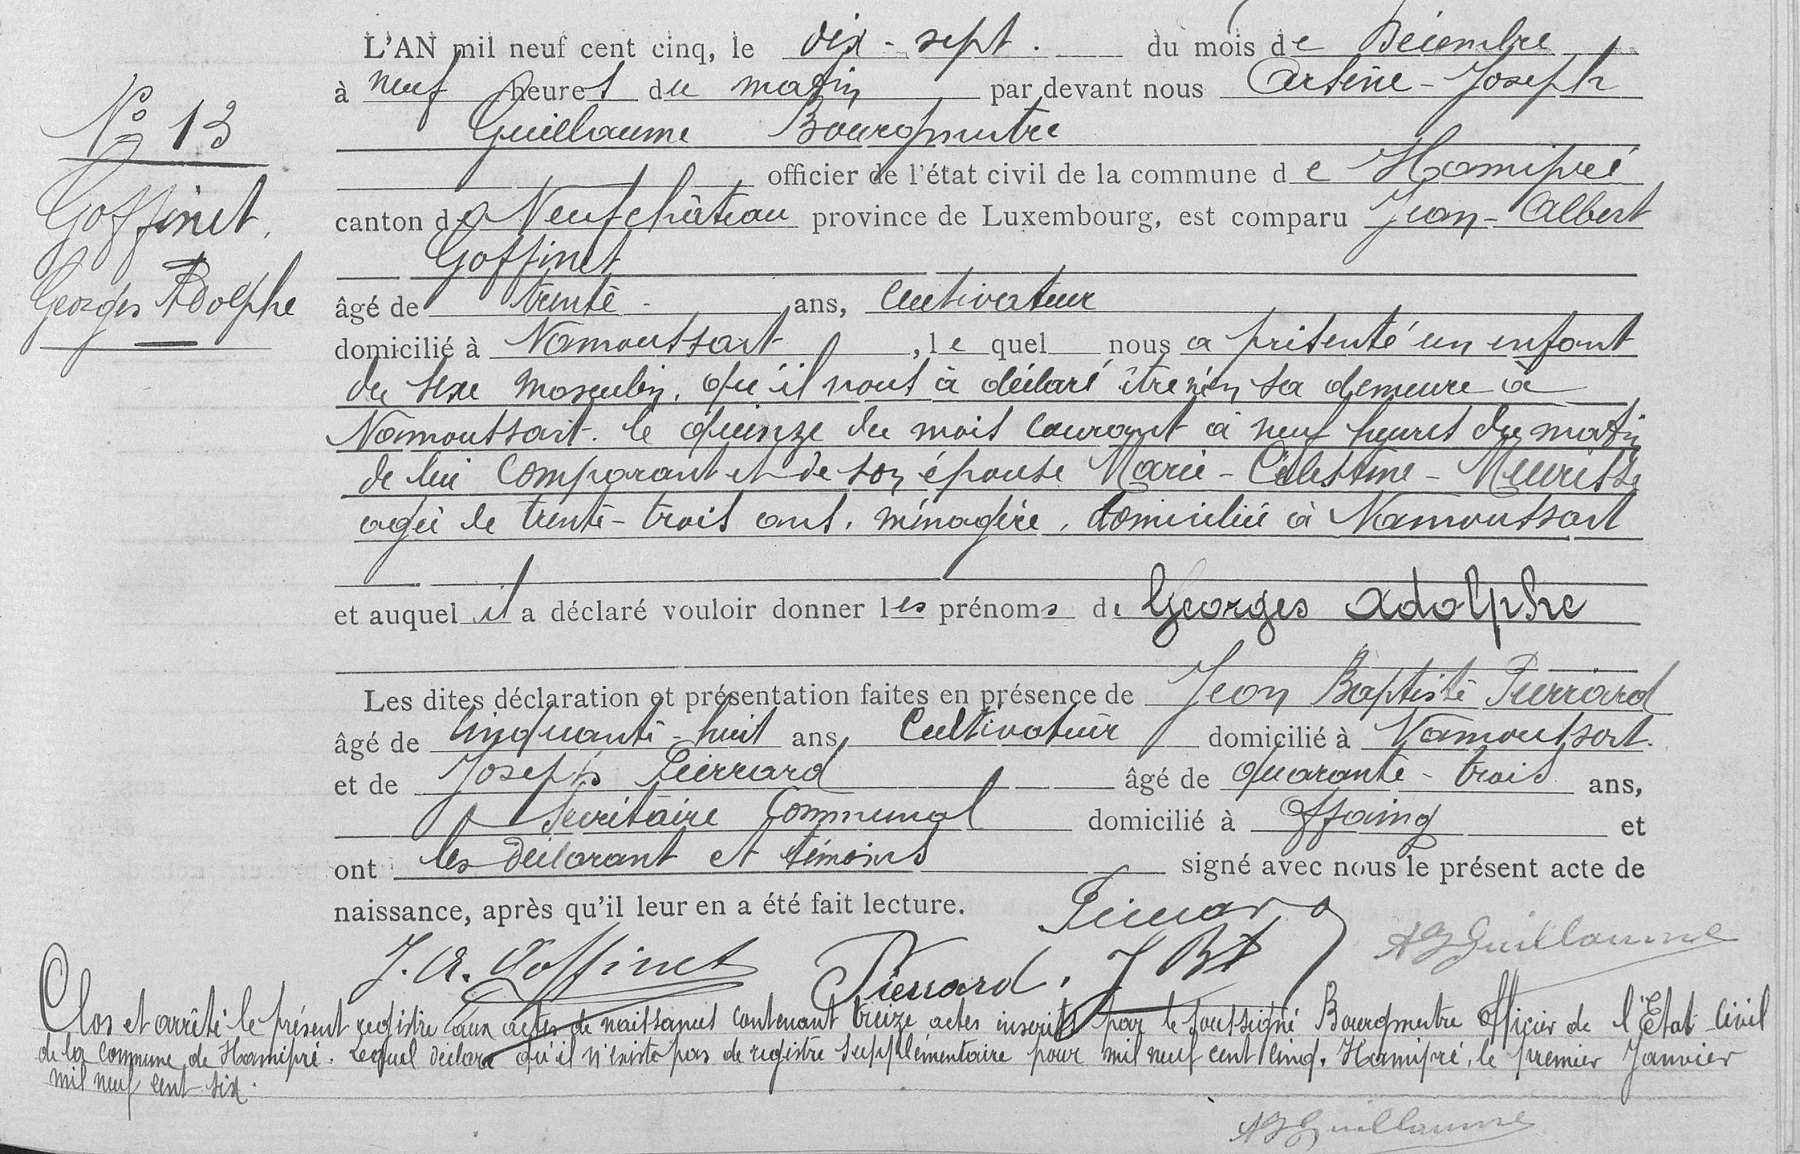 L'AN mil neuf cent cinq, le dix-sept. du mois de Décembre
à neuf heures du matin par devant nous Arsène-Joseph
Guillaume Bourgmestre
officier de l'état civil de la commune de Hamipré
canton de Neufchâteau province de Luxembourg, est comparu Jean-Albert
Goffinet
âgé de trente ans, cultivateur
domicilié à Namoussart, lequel nous a présenté un enfant
du sexe masculin, qu'il nous à déclaré être né en sa demeure à
Namoussart. le quinze du mois courant à neuf heures du matin
de lui comparant et de son épouse Marie-Célestine-Meurisse
agée de trente-trois ans, ménagère, domiciliée à Namoussart
et auquel il a déclaré vouloir donner les prénoms de Georges Adolphe
Les dites déclaration et présentation faites en présence de Jean Baptiste Pierrard
âgé de cinquante-huit ans, Cultivateur domicilié à Namoussart.
et de Joseph Pierrard âgé de quarante-trois ans,
Secrétaire Communal domicilié à Offaing et
ont les déclarant et témoins signé avec nous le présent acte de
naissance, après qu'il leur en a été fait lecture.
Pierrard
J. A. Goffinet Pierrard. J Bt AJGuillaume
Clos et arrêté le présent registre aux actes de naissances contenant treize actes inscrits par le soussigné Bourgmestre Officier de l'Etat Civil
de la commune de Hamipré. Lequel déclare qu'il n'existe pas de registre supplémentaire pour mil neuf cent cinq. Hamipré, le premier Janvier
mil neuf cent-six.
AJGuillaume
No 13
Goffinet.
Georges Adolphe